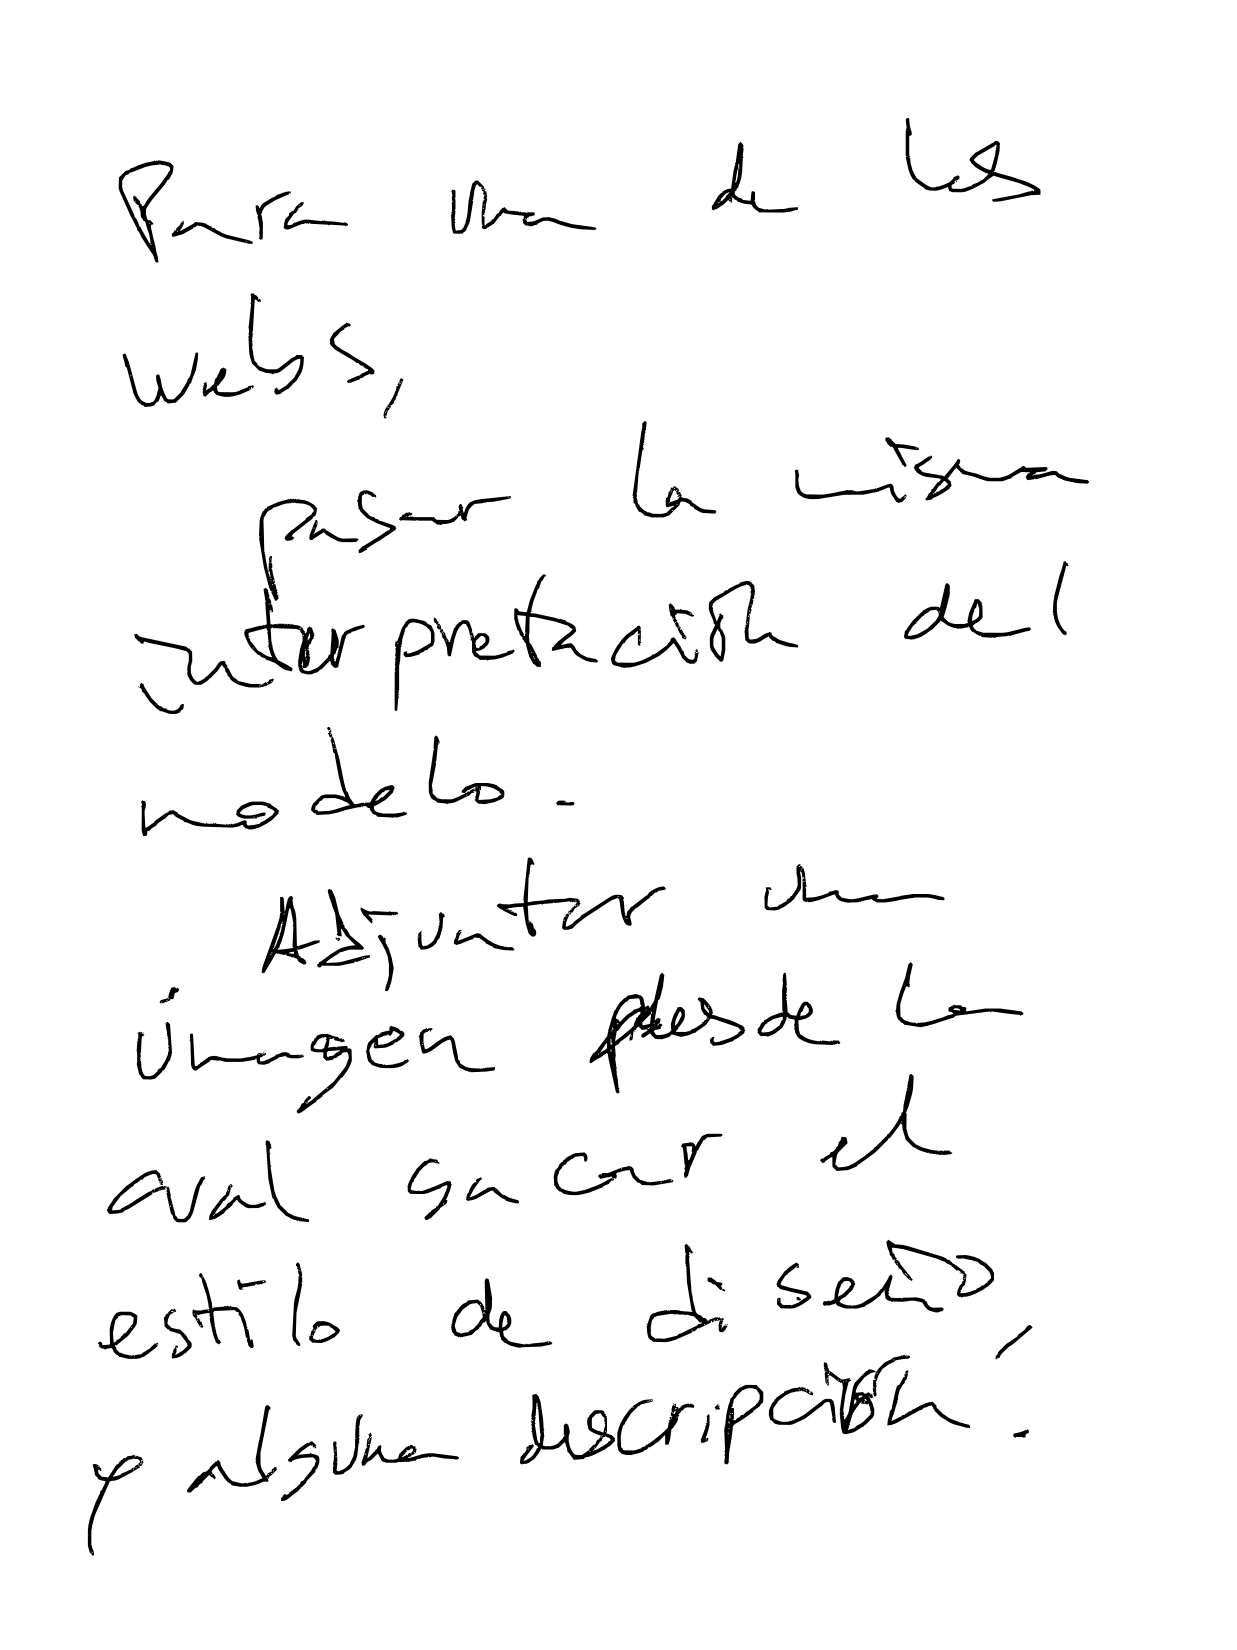 Para una de las
webs,
pasar la misma
interpretación del
modelo.
Adjuntar una
imagen desde la
cual sacar el
estilo de diseño,
y alguna descripción.